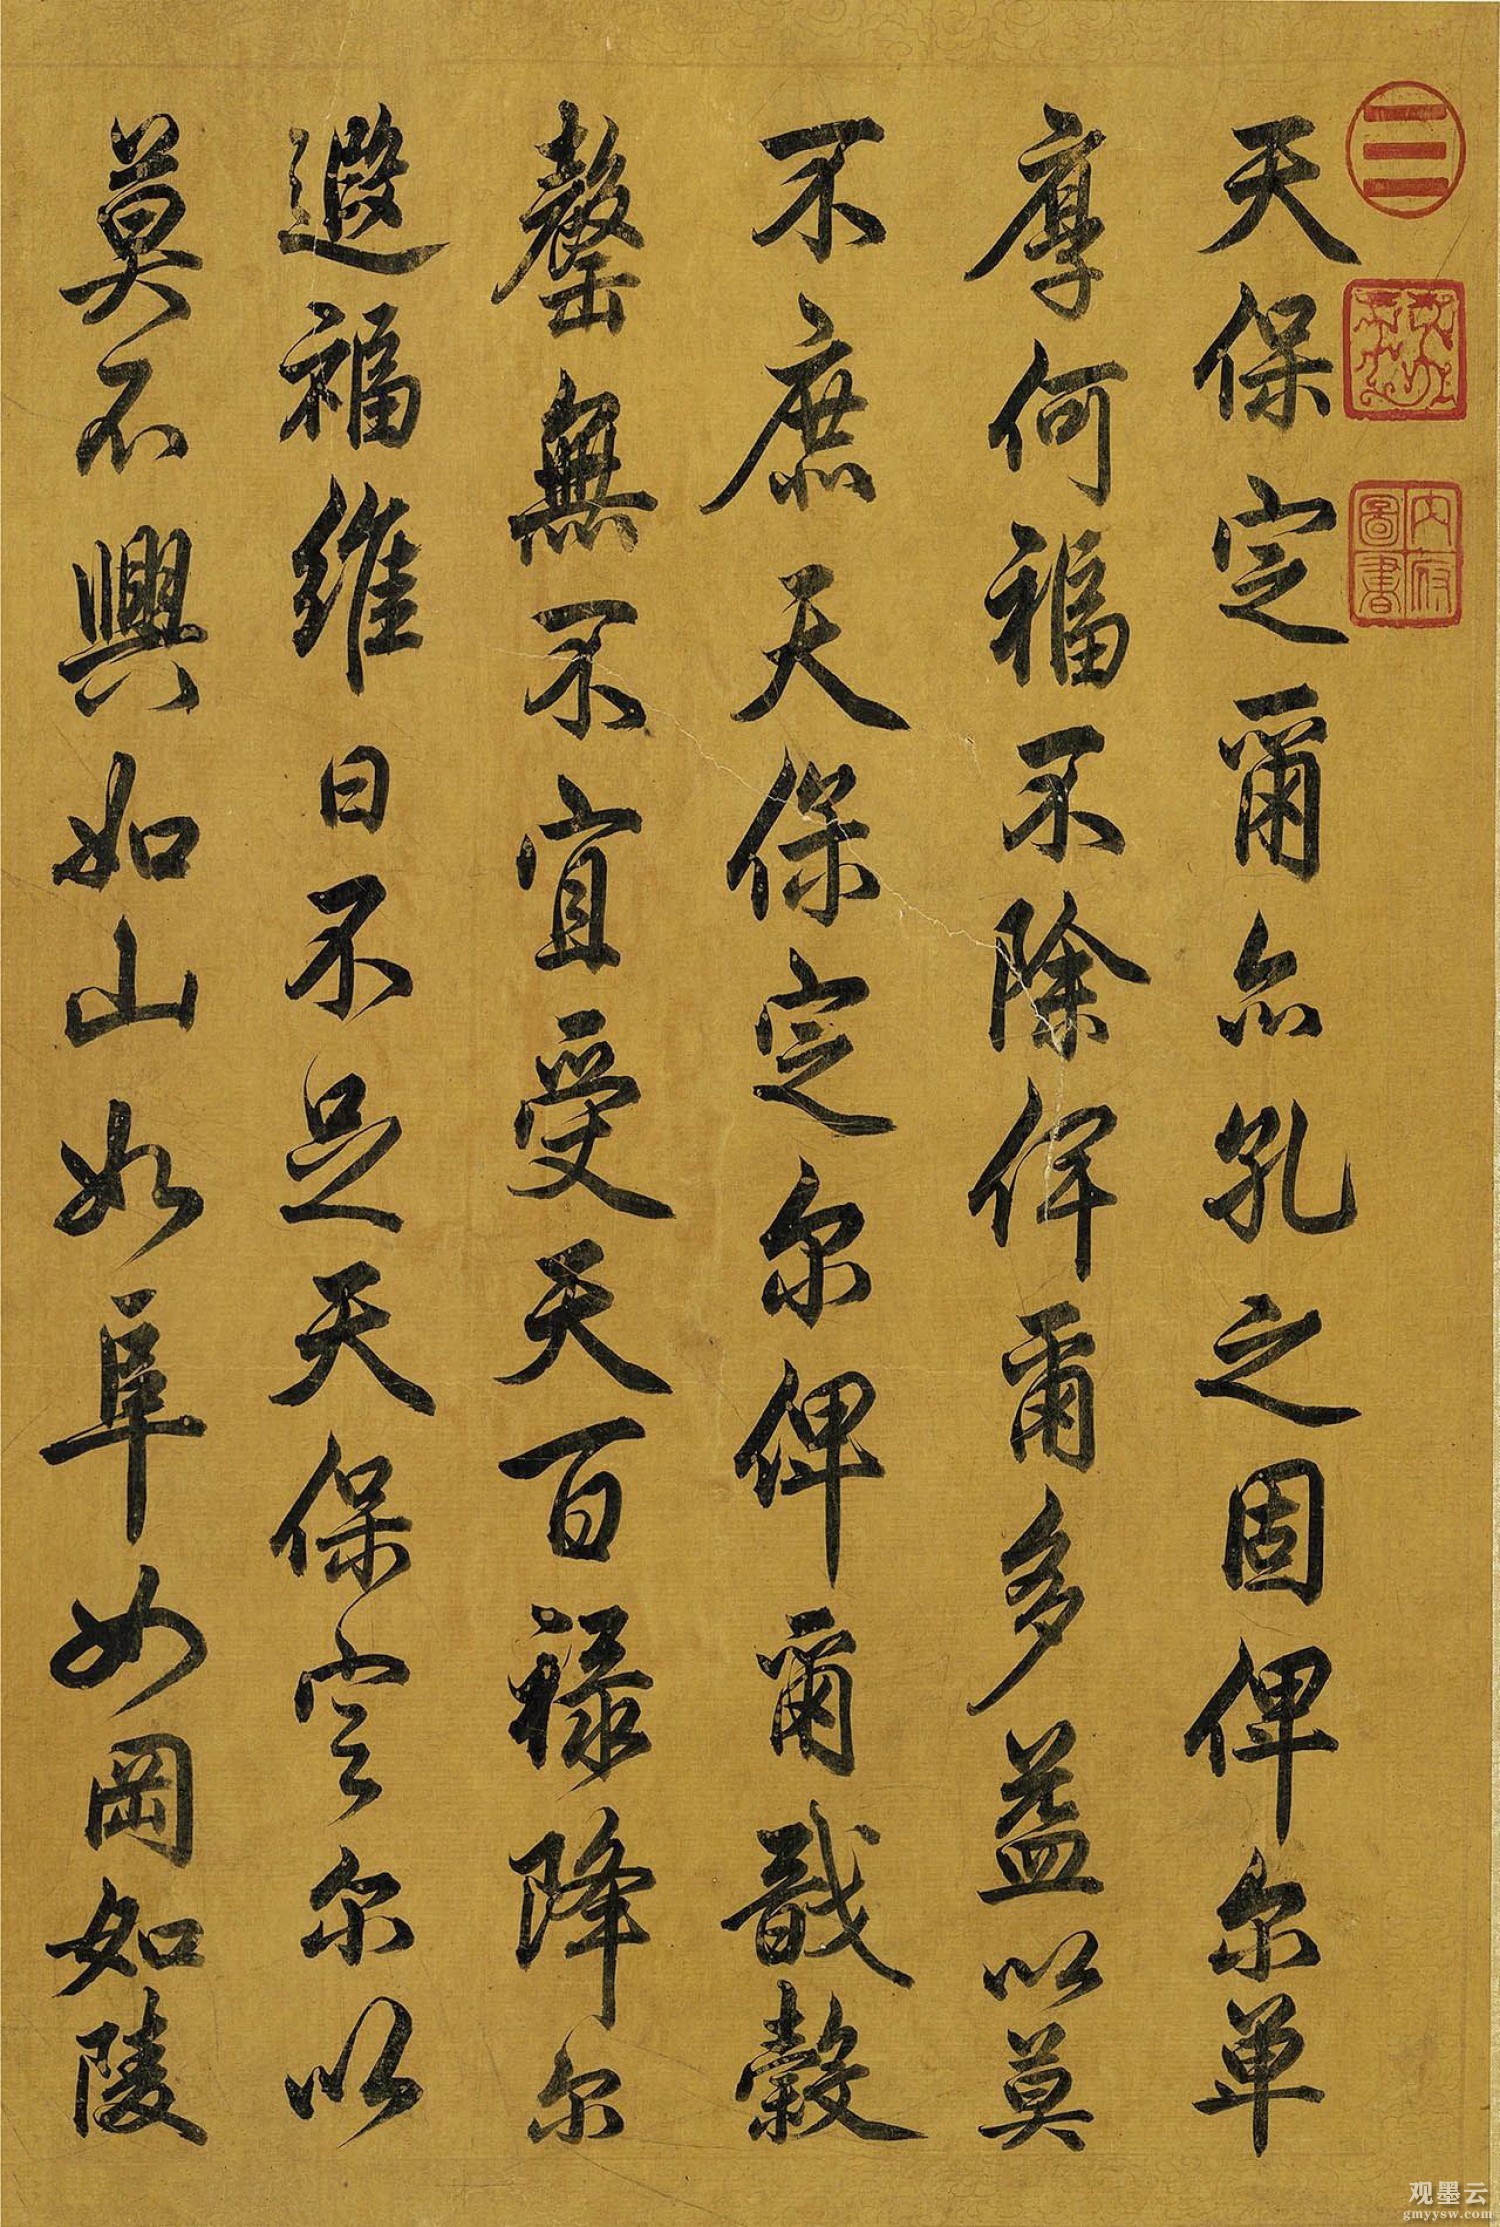 天保定爾亦孔之固俾尔單
厚何福不除俾爾多益以莫
不庶天保定尔俾爾戩穀
罄無不宜受天百禄降尔
遐福維日不足天保定尔以
莫不興如山如阜如岡如陵
三
内府圖書
观墨云
gmyysw.com